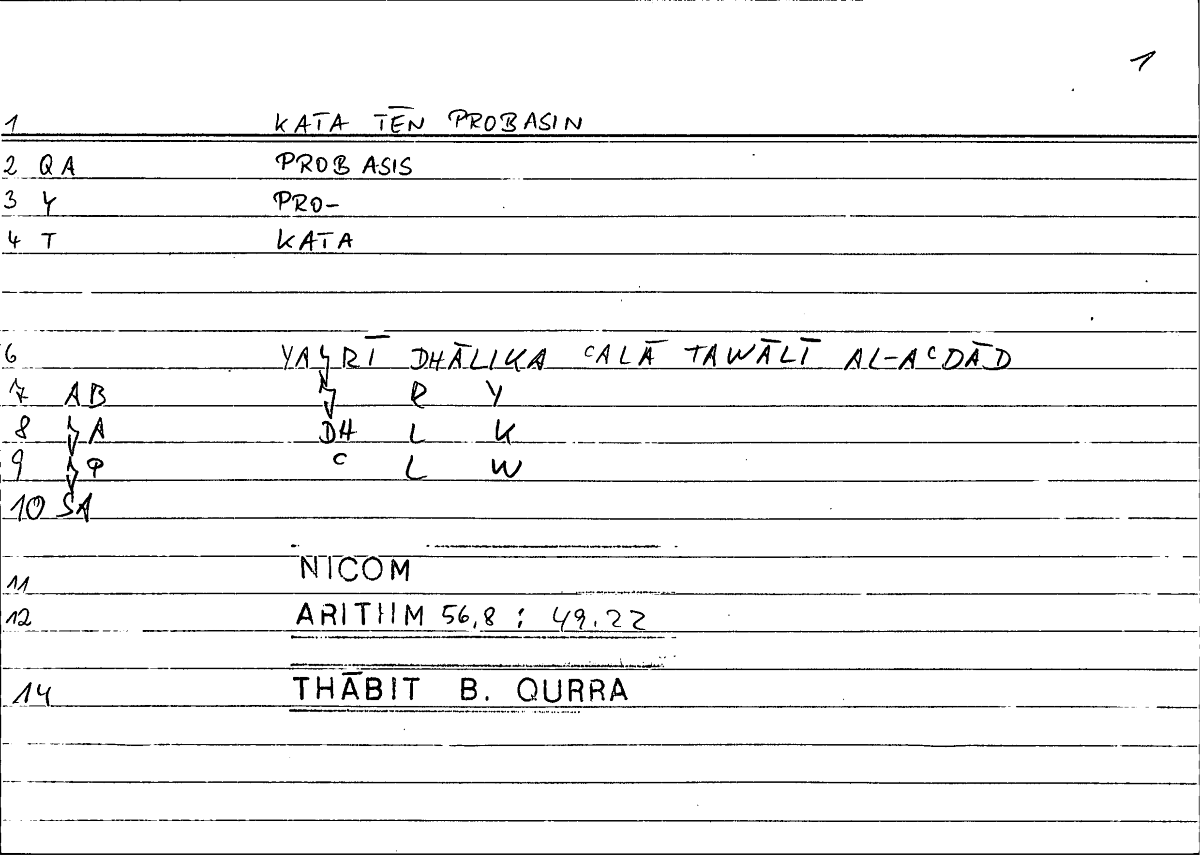 1
1 KATA TĒN PROBASIN
2 QA PROBASIS
3 Y PRO-
4 T KATA
6 YAϟRĪ DHĀLIKA ᶜALĀ TAWĀLĪ AL-AᶜDĀD
7 AB ϟ R Y
8 ϟA DH L K
9 ϟP ᶜ L W
10 SA
11 NICOM
12 ARITHM 56,8 : 49.22
14 THĀBIT B. QURRA